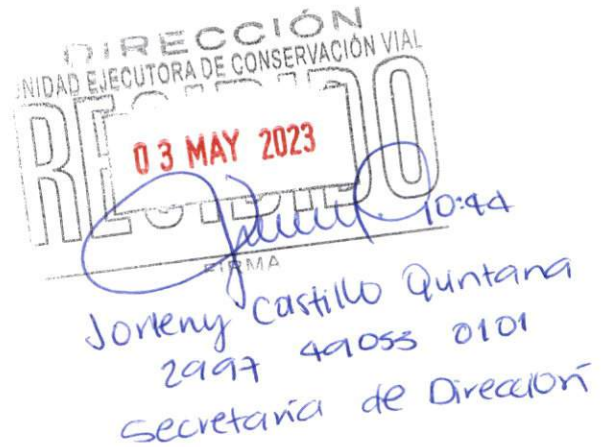 DIRECCIÓN
UNIDAD EJECUTORA DE CONSERVACIÓN VIAL
RECIBIDO
03 MAY 2023
10:44
FIRMA
Jorleny Castillo Quntana
2997 49053 0101
Secretaria de Dirección